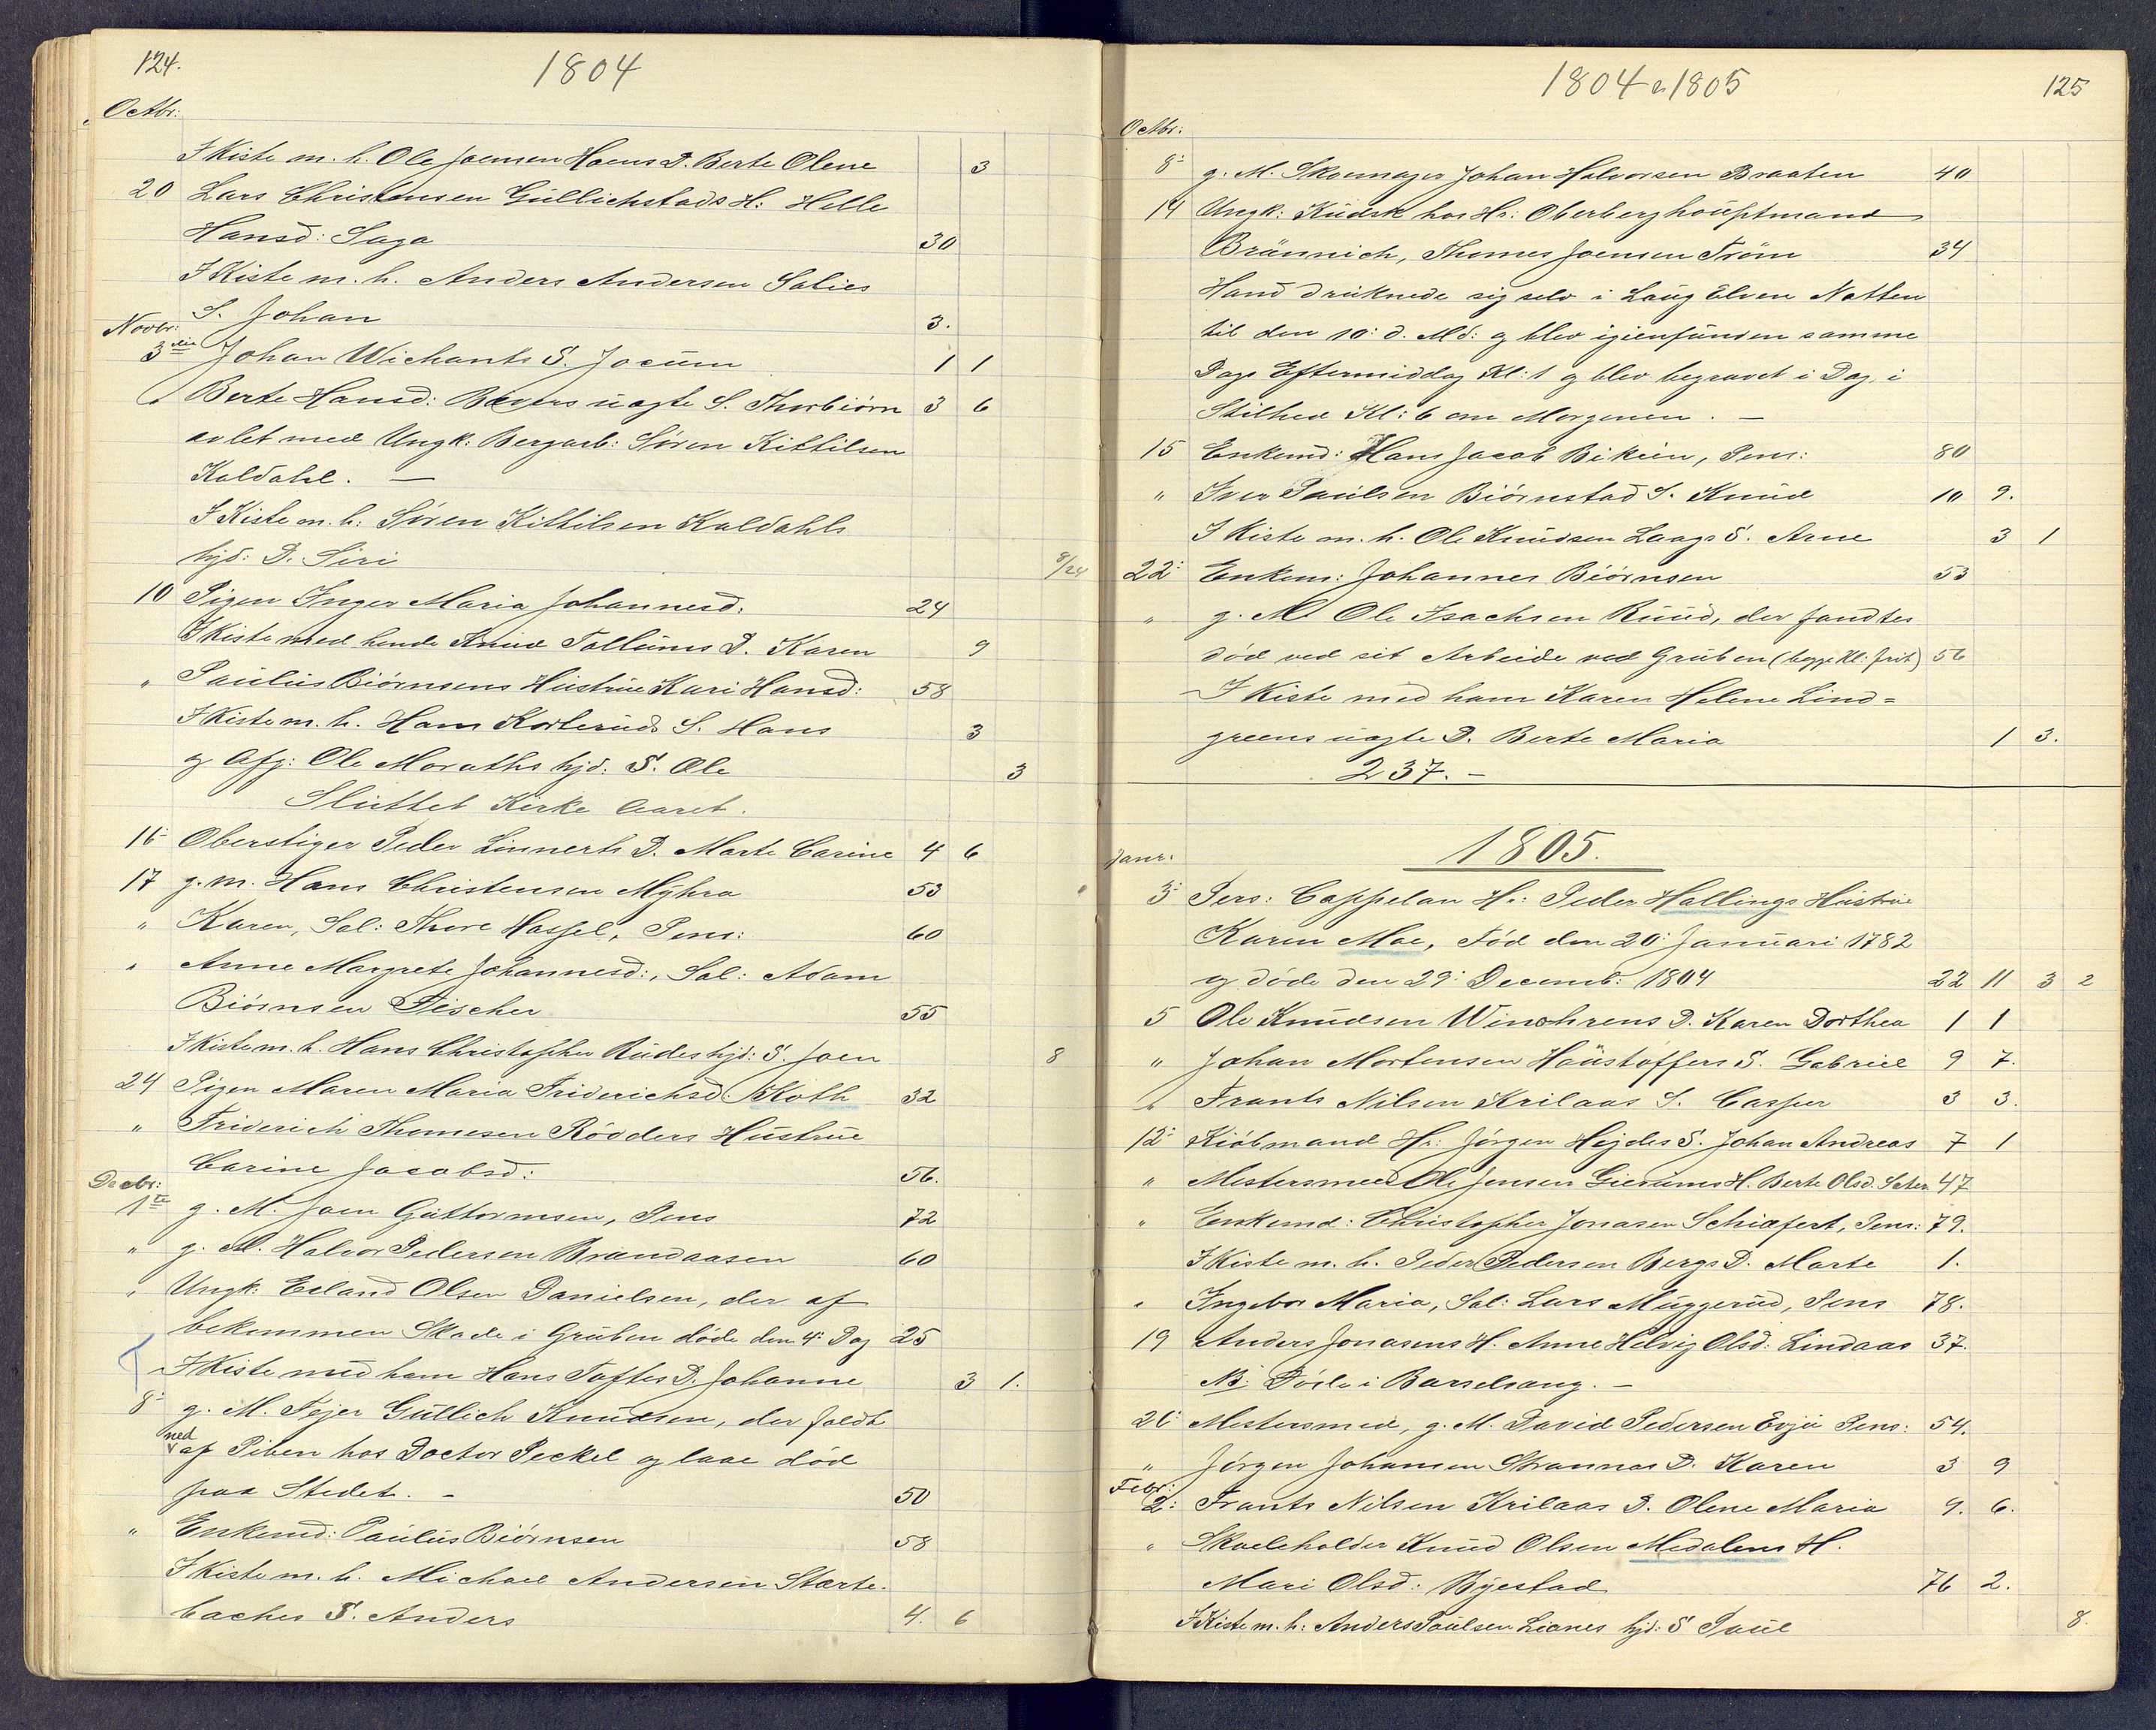 124.
1804
Octbr:
I Kiste m. h. Ole Joensen Hoens D. Berte Olene 3
20 Lars Christensen Gullichstads H: Helle
Hansd: Saga 30
I Kiste m. h. Anders Andersen Salies
S. Johan 3.
Novbr:
3die Johan Wichants S. Jocum 1 1
" Berte Hansd: Bævers uægte S. Thorbiörn 3 6
avlet med Ungk: Bergarb: Sören Kittilsen
Kaldahl. —
I Kiste m. h: Sören Kittilsen Kaldahls
hjd: D. Siri 8/24
10 Pigen Inger Maria Johannesd: 24
I Kiste med hende Amund Tollums D. Karen 9
" Paulus Biörnsens Hustrue Kari Hansd: 58
I Kiste m. h. Hans Korteruds S. Hans 3
og Afg: Ole Moraths hjd: S. Ole 3
Sluttet Kirke Aaret.
16 Oberstiger Peder Linnerts D. Marte Carine 4 6
17 g. m. Hans Christensen Myhra 53
" Karen, Sal: Thore Hassel, Pens: 60
" Anne Margrete Johannesd:, Sal: Adam
Biörnsen Fischer 55
I Kiste m. h. Hans Christopher Rudes hjd: S. Joen 8
24 Pigen Maren Maria Friderichsd: Koth 32
" Friderich Thomesen Rödders Hustrue
Carine Jacobsd: 56.
Decbr:
1te g. M. Joen Guttormsen, Pens 72
" g. M. Halvor Pedersen Brandaasen 60
" Ungk: Erland Olsen Danielsen, der af
bekommen Skade i Gruben döde den 4: Dag 25
I Kiste med ham Hans Toftes D. Johanne 3 1.
8: g. M. Fejer Gullich Knudsen, der faldt
ned af Piben hos Doctor Peckel og laae död
paa Stedet. - 50
" Enkemd: Paulus Biörnsen 58
I Kiste m. h. Michael Andersen Stærte-
baches S. Anders 4. 6
1804 & 1805
125
Octbr:
8: g. M. Skoemager Johan Halvorsen Braaten 40
14 Ungk: Kudsk hos Hr: Oberberghouptmand
Brünnich, Thomes Joensen Tröm 34
Hand druknede sig selv i Laug Elven Natten
til den 10: d. Md: og blev igienfunden samme
Dags Eftermiddag Kl: 1 og blev begravet i Dag i
Stilhed Kl: 6 om Morgenen. —
15 Enkemd: Hans Jacob Bikuin, Pens: 80
" Iver Paulsen Biörnstad S. Knud 10 9.
I Kiste m. h. Ole Knudsen Laags S. Arne 3 1
22: Enkem: Johannes Biörnsen 53
" g. M. Ole Isachsen Ruud, der fandtes
död ved sit Arbeide ved Gruben (begge Kl: frit) 56
I Kiste med ham Karen Helene Lind=
greens uægte D. Berte Maria 1 3.
237. -
1805.
Janr:
3: Pers: Cappelan Hr: Peder Hallings Hustrue
Karen Moe, Född den 20: Januari 1782
og döde den 29: Decemb: 1804 22 11 3 2
5 Ole Knudsen Winohrens D. Karen Dorthea 1 1
" Johan Mortensen Haustoffers S. Gabriel 9 7.
" Frants Nilsen Krilaas S. Casper 3 3.
12: Kiöbmand Hr: Jörgen Hejdes S. Johan Andreas 7 1
" Mestersmed Ole Jensen Gierums H. Berte Olsd. Seter 47
" Enkemd: Christopher Jonasen Schiafert, Pens: 79.
I Kiste m. h. Peder Pedersen Bergs D. Marte 1.
" Ingebor Maria, Sal: Lars Muggerud, Pens 78.
19 Anders Jonasens H. Anne Helvig Olsd: Lindaas 37.
NB: Döde i Barselsæng. —
26: Mestersmed, g. M. David Pedersen Evju Pens: 54.
" Jörgen Johansen Strannas D. Karen 3 9
Febr:
2: Frants Nilsen Krilaas D. Olene Maria 9. 6.
" Skoeleholder Knud Olsen Medalens H.
Mari Olsd: Byestad 76 2.
I Kiste m. h: Anders Paulsen Lianes hjd: S Paul 8.